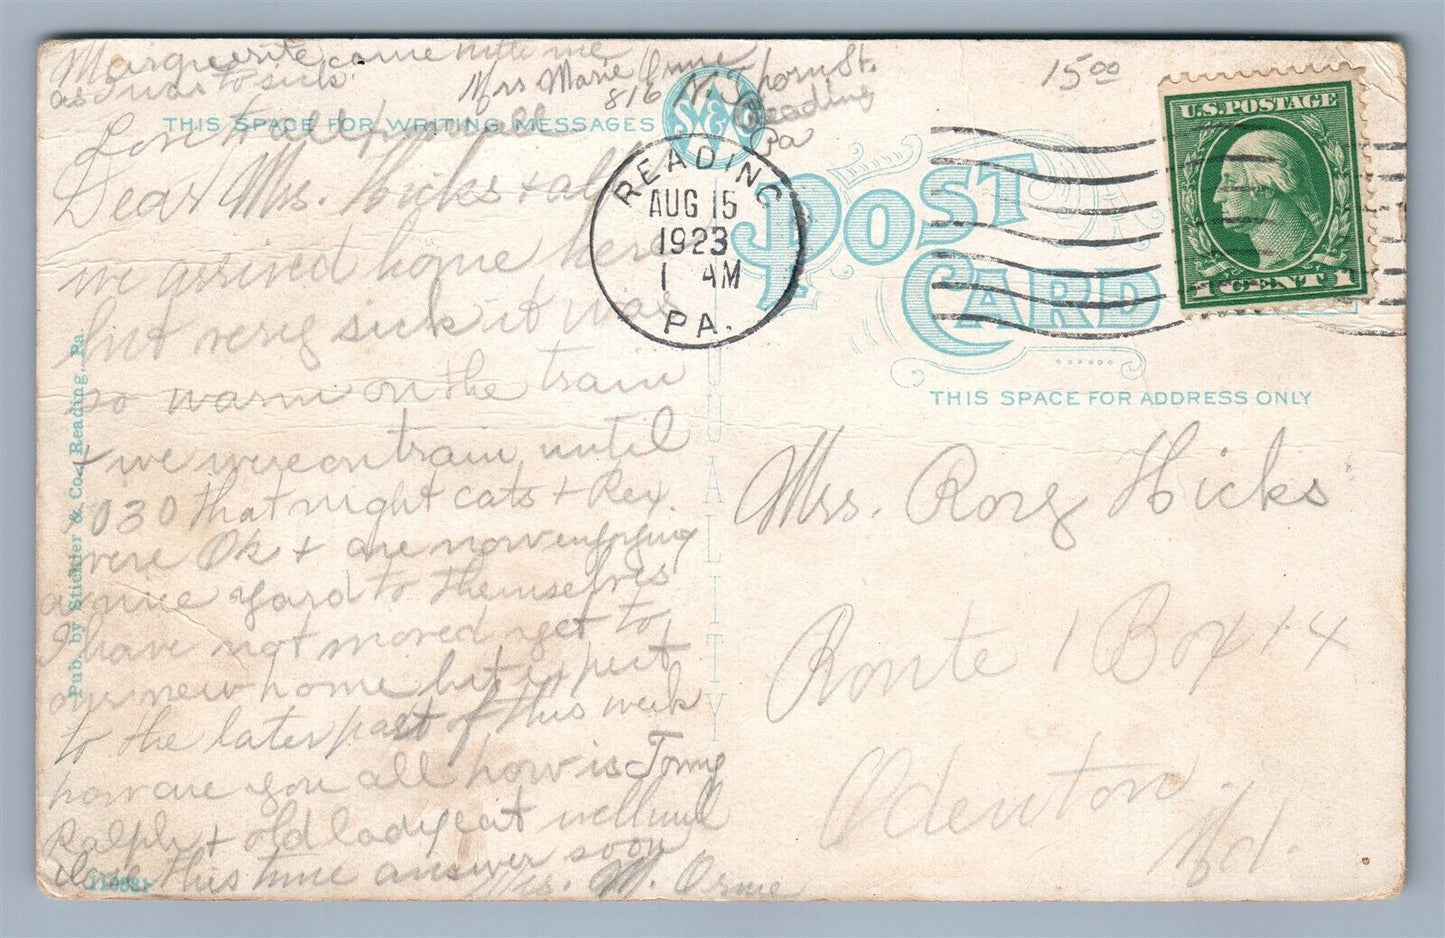 Marguerite came with me
as I was to sick
Mrs Marie Orme
816 N. Thorn St.
Reading
Pa
15 00
U.S. POSTAGE
1 CENT 1
THIS SPACE FOR WRITING MESSAGES
S & Co
Love to all from all
READING
AUG 15
1923
1 AM
PA.
POST
CARD
THIS SPACE FOR ADDRESS ONLY
Dear Mrs. Hicks & all
we arrived home here
but very sick it was
so warm on the train
& we were on train until
1030 that night cats & Rex
were Ok & are now enjoying
a nice yard to themselves
I have not moved yet to
our new home but expect
to the later part of this week
how are you all how is Tomy
Ralph & old lady cat well will
close this time answer soon
Mrs. M. Orme
Mrs. Rory Hicks
Route 1 Box 14
Odenton
Md.
Pub. by Stichler & Co., Reading, Pa
QUALITY